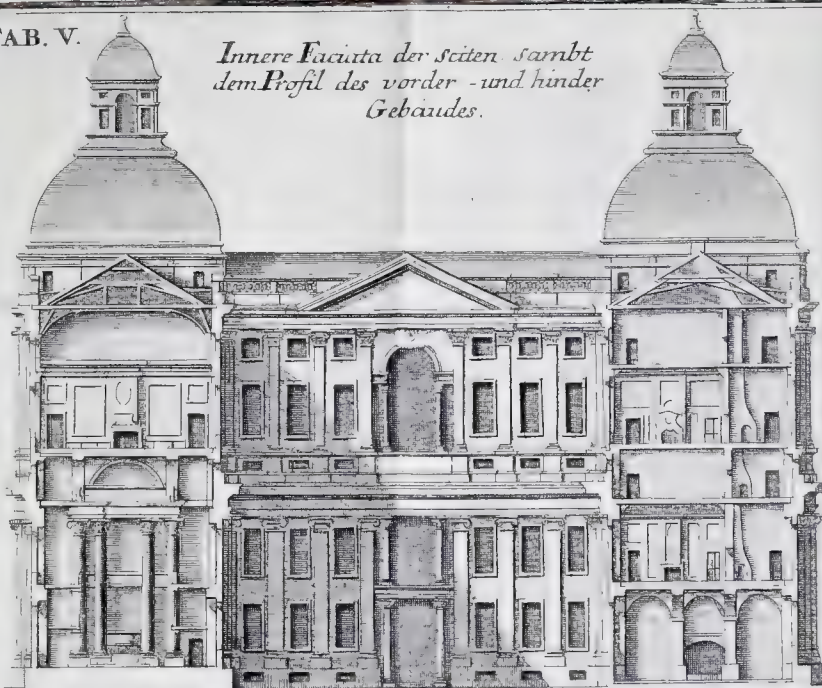 TAB. V.
Innere Faciata der seiten sambt
dem Profil des vorder - und hinder
Gebäudes.